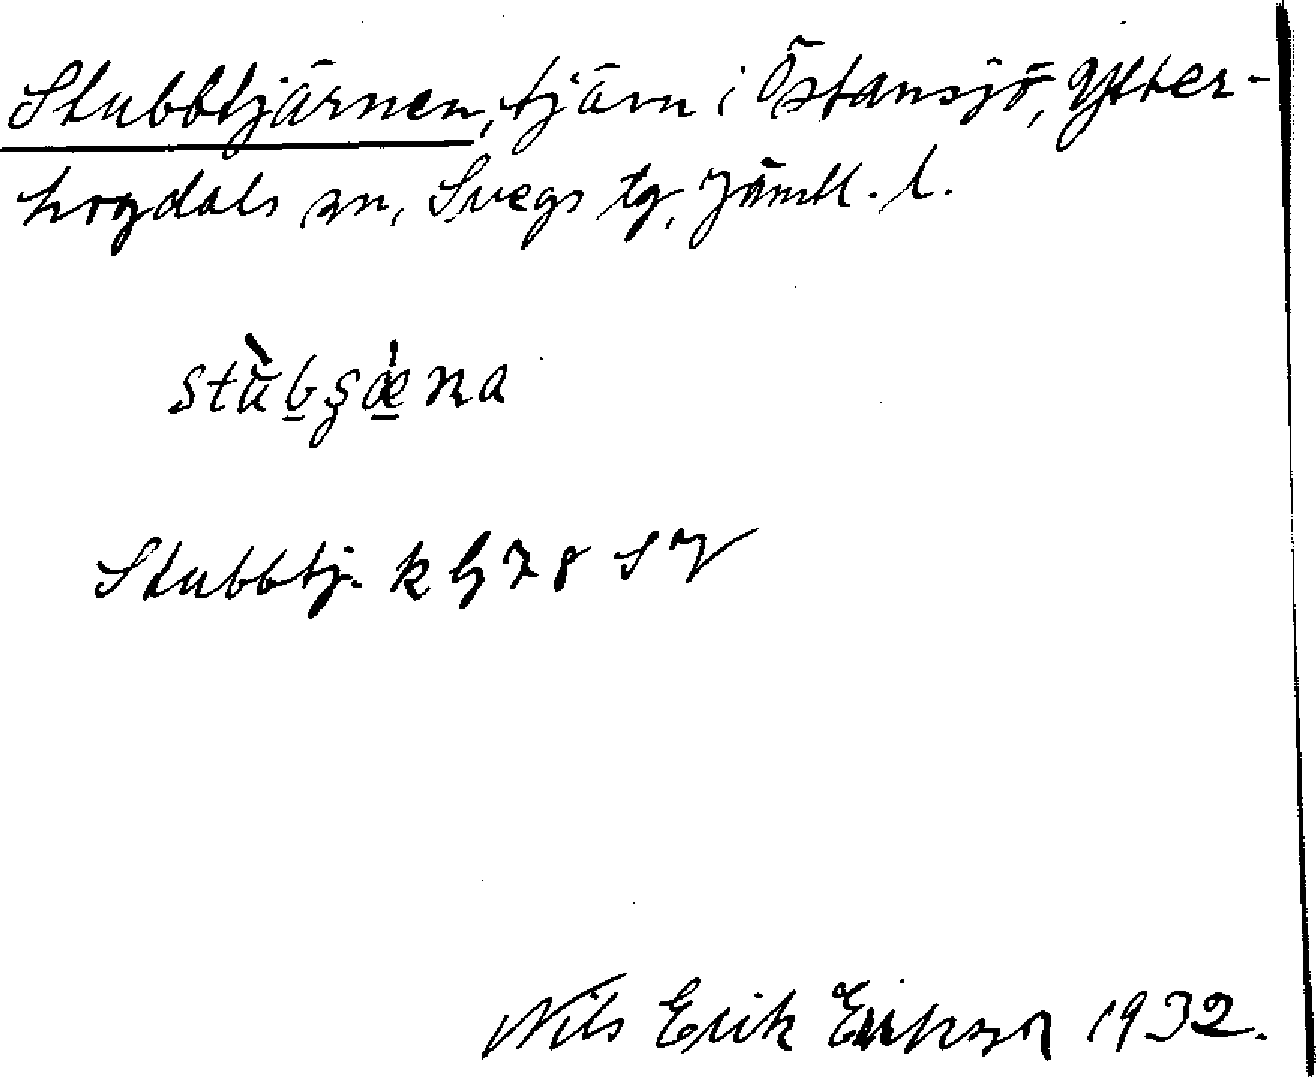 Stubbtjärnen, tjärn i Östansjö, Ytter-
hogdals sn, Svegs tg, Jämtl. l.
stùb̲ʂæ̲̀na
Stubbtj. k bl 78 SV
Nils Erik Eriksson 1932.